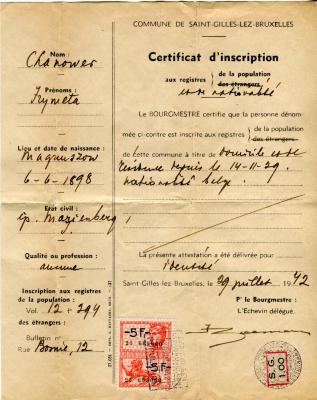 COMMUNE DE SAINT-GILLES-LEZ-BRUXELLES
Nom :
Chanower
Prénoms :
Lieu et date de naissance :
Magnuszow
6-6-1898
État civil :
Ep. Mazienberg
Qualité ou profession :
aucune
Inscription aux registres
de la population :
Vol. 12 + 294
des étrangers :
Bulletin n°
Rue Bosnie, 12
Certificat d'inscription
aux registres { de la population
des étrangers
et de nationalité
Le BOURGMESTRE certifie que la personne dénom-
mée ci-contre est inscrite aux registres { de la population
des étrangers
de cette commune à titre de domicile et de
résidence depuis le 14-11-29.
nationalité belge.
La présente attestation a été délivrée pour
identité
Saint-Gilles-lez-Bruxelles, le 29 juillet 1942
Pr le Bourgmestre :
L'Echevin délégué,
-5 Fr-
-5 Fr-
S. G.
1.00